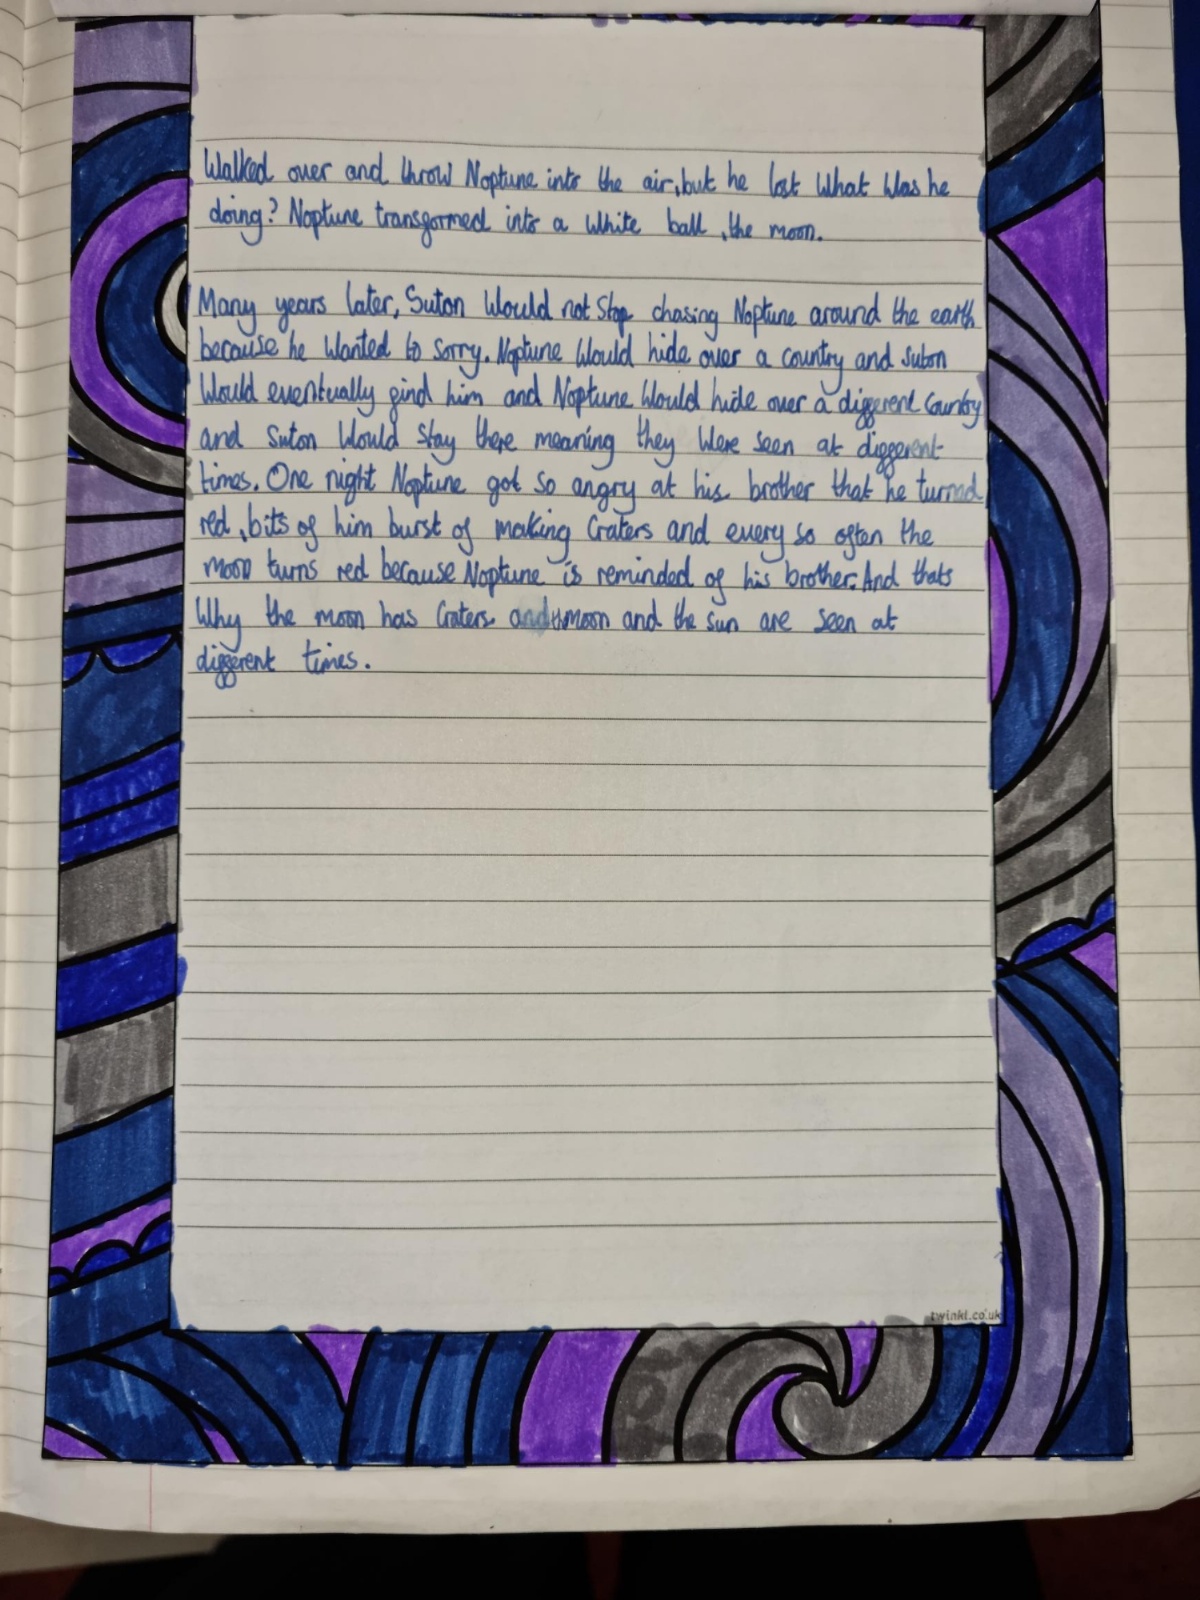 Walked over and throw Neptune into the air, but he lost what was he
doing? Neptune transformed into a white ball, the moon.
Many years later, Suton would not stop chasing Neptune around the earth
because he wanted to sorry. Neptune would hide over a country and suton
would eventually find him and Neptune would hide over a different country
and suton would stay there meaning they were seen at different
times. One night Neptune got so angry at his brother that he turned
red, bits of him burst of making craters and every so often the
moon turns red because Neptune is reminded of his brother. And thats
why the moon has craters and moon and the sun are seen at
different times.
twinkl.co.uk